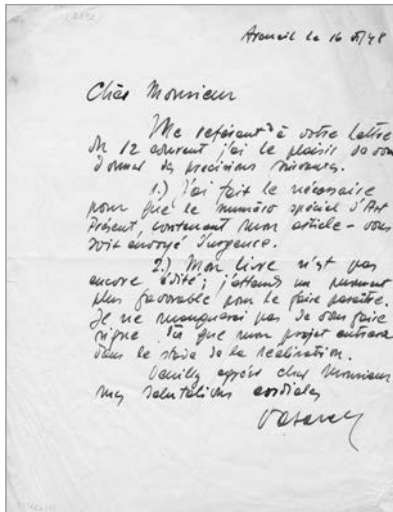 Arcueil le 16 XI/48
Cher Monsieur
Me referant à votre lettre
du 12 courant j'ai le plaisir de vous
donner les precisions suivantes.
1.) J'ai fait le nécessaire
pour que le numéro spécial d'Art
Présent, contenant mon article – vous
soit envoyé d'urgence.
2.) Mon livre n'est pas
encore édité; j'attends un moment
plus favorable pour le faire paraître.
Je ne manquerai pas de vous faire
signe dès que mon projet entrera
dans le stade de la réalisation.
Veuillez agréer cher Monsieur
mes salutations cordiales
Vasarely